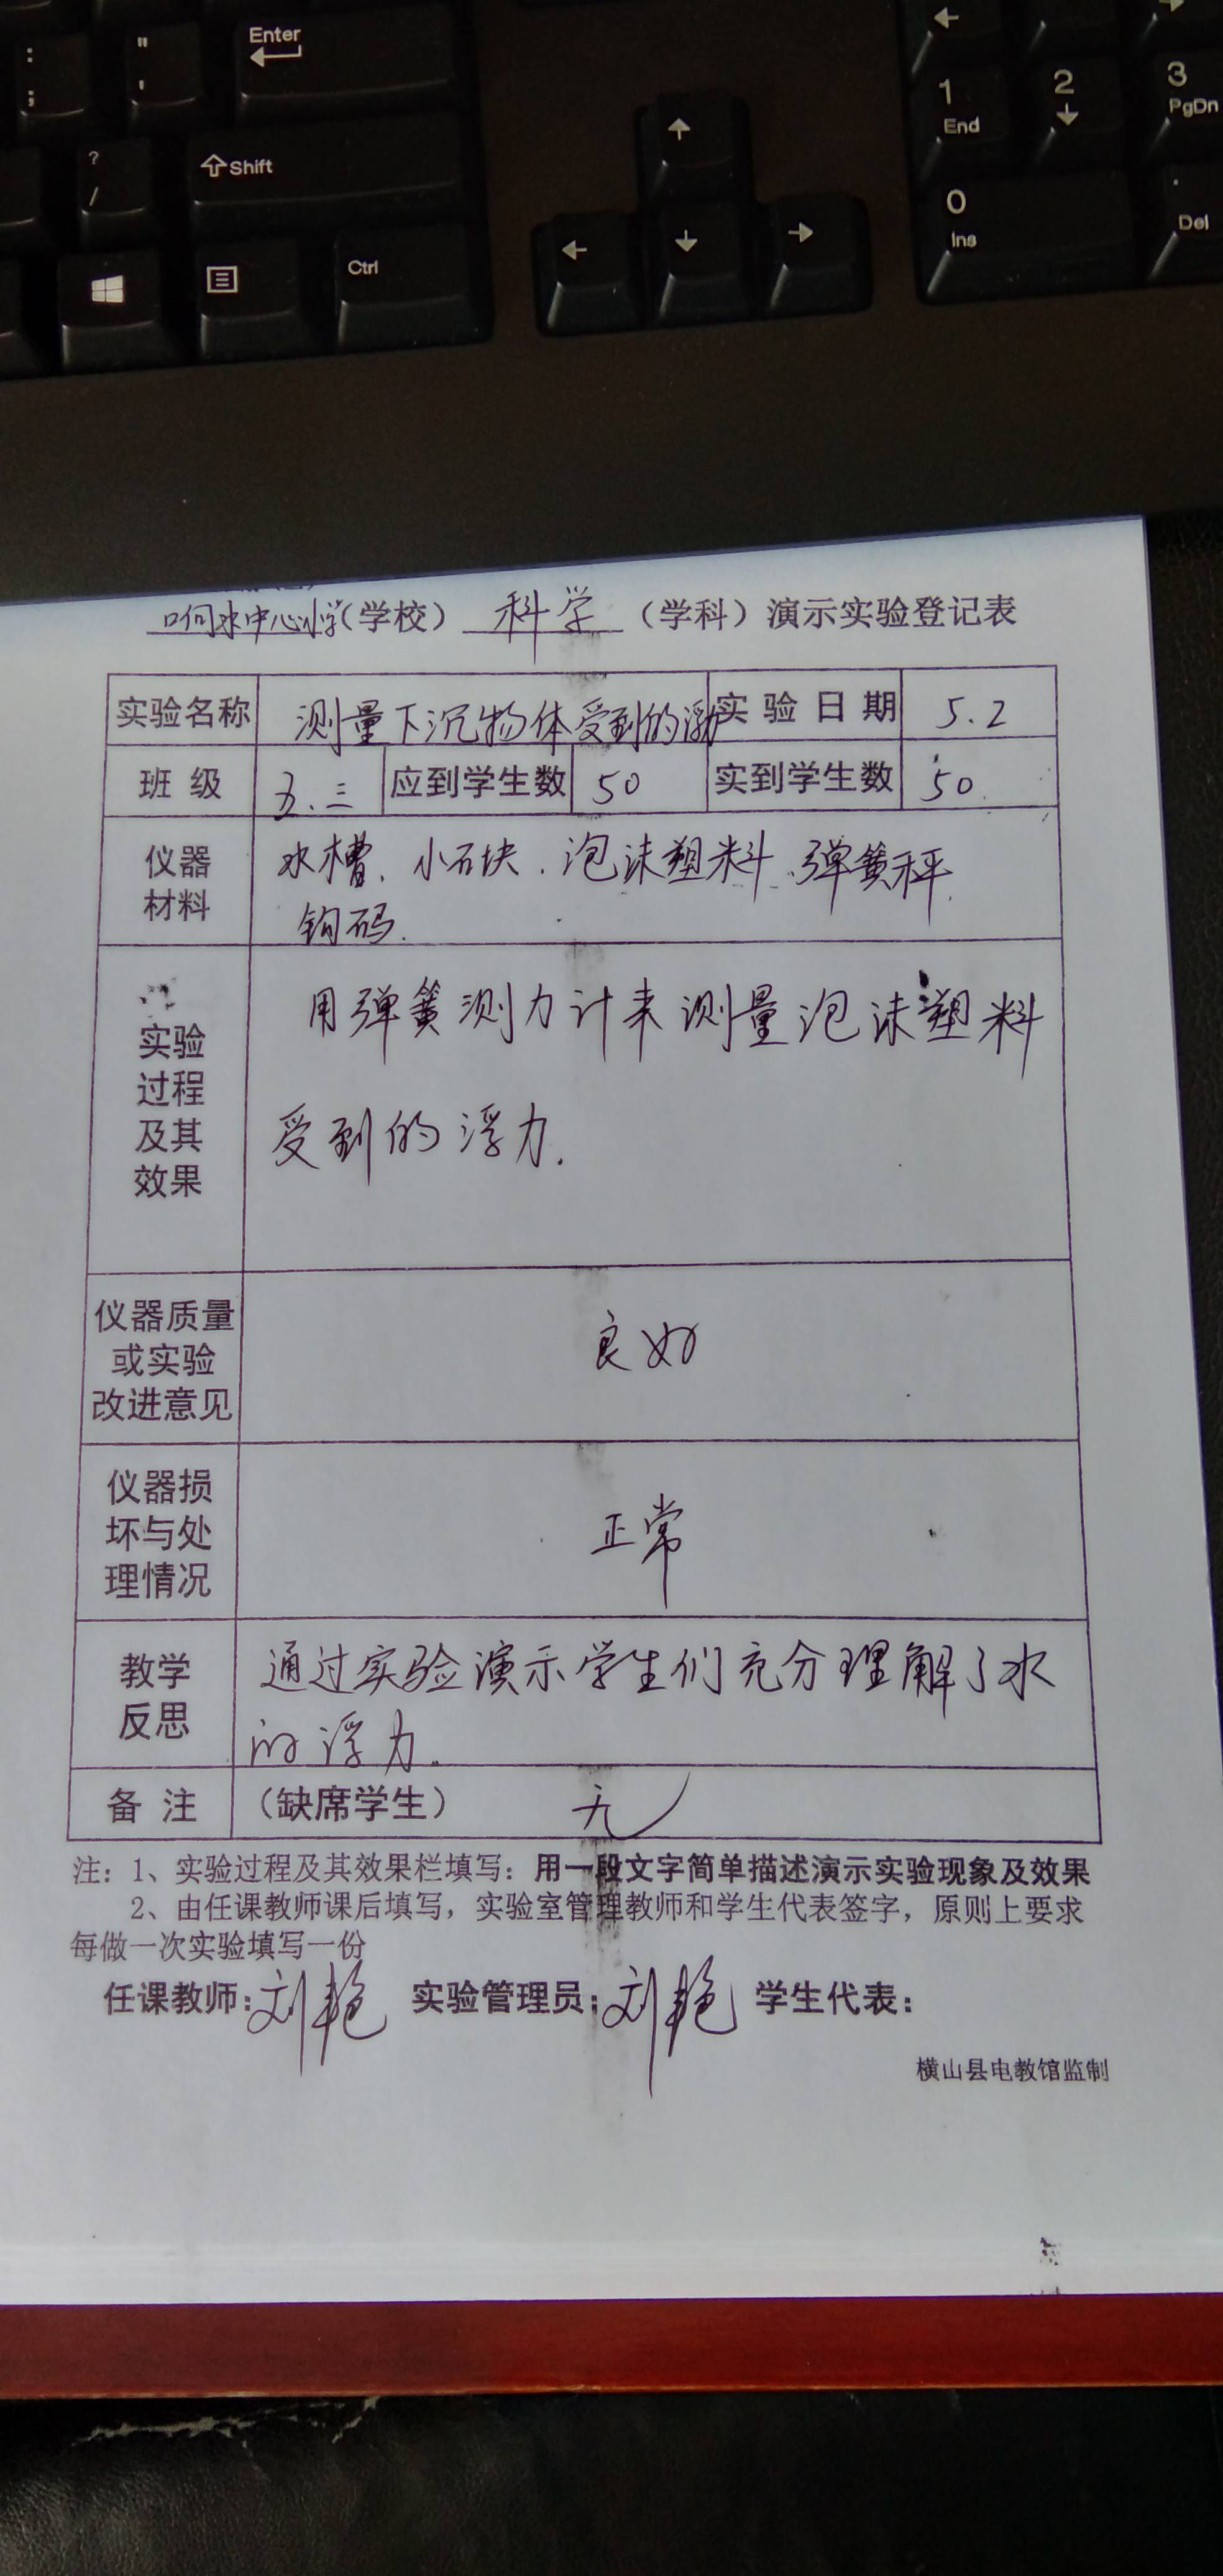 : " Enter
; '
1 2 3
End PgDn
? Shift
/
0 .
Ins Del
Ctrl
响水中心小学(学校) 科学 (学科)演示实验登记表
实验名称 测量下沉物体受到的浮力 实验日期 5.2
班级 五.三 应到学生数 50 实到学生数 50
仪器 水槽、小石块、泡沫塑料、弹簧秤
材料 钩码.
用弹簧测力计来测量泡沫塑料
实验
过程
及其 受到的浮力.
效果
仪器质量
或实验 良好
改进意见
仪器损
坏与处 正常
理情况
教学 通过实验演示学生们充分理解了水
反思 的浮力.
备注 (缺席学生) 无
注: 1、实验过程及其效果栏填写: 用一段文字简单描述演示实验现象及效果
2、由任课教师课后填写, 实验室管理教师和学生代表签字, 原则上要求
每做一次实验填写一份
任课教师: 刘艳 实验管理员: 刘艳 学生代表:
横山县电教馆监制